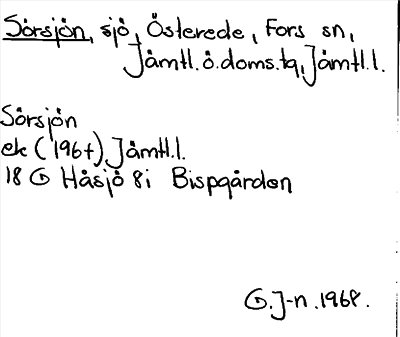 Sörsjön, sjö, Österede, Fors sn,
Jämtl.ö.doms.tg, Jämtl.l.
Sörsjön
ek (1967) Jämtl.l.
18 G Håsjö 8i Bispgården
G.J-n. 1968.